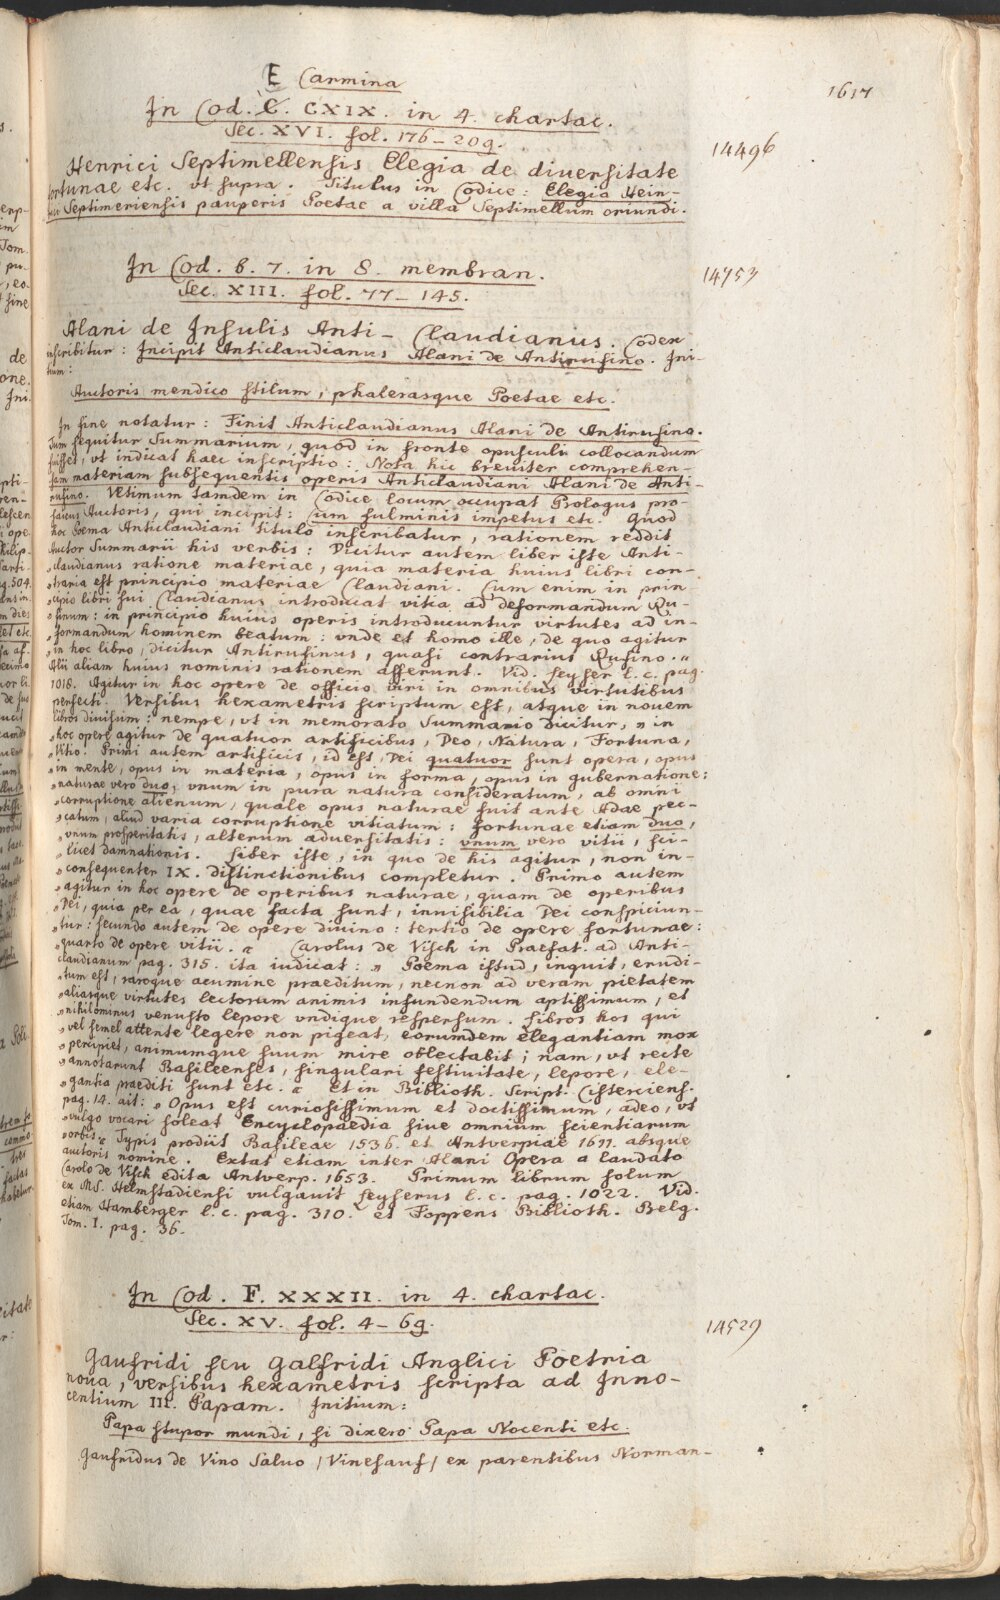 1617
E Carmina
In Cod. C. CXIX. in 4. chartac.
Sec. XVI. fol. 176-209.
14496
Henrici Septimellensis Elegia de diuersitate
fortunae etc. vt supra. Titulus in Codice: Elegia Hein-
rici Septimeriensis pauperis Poetae a villa Septimellum oriundi.
In Cod. b. 7. in 8. membran.
Sec. XIII. fol. 77-145.
14753
Alani de Insulis Anti-Claudianus. Codex
inscribitur: Incipit Anticlaudianus Alani de Antirufino. Ini-
tium:
Auctoris mendico stilum, phalerasque Poetae etc.
In fine notatur: Finit Anticlaudianus Alani de Antirufino.
Tum sequitur Summarium, quod in fronte opusculi collocandum
fuisset, vt indicat haec inscriptio: Nota hic breuiter comprehen-
sam materiam subsequentis operis Anticlaudiani Alani de Anti-
rufino. Vltimum tamdem in Codice locum occupat Prologus pro-
saicus Auctoris, qui incipit: Cum fulminis impetus etc. Quod
hoc Poema Anticlaudiani titulo inscribatur, rationem reddit
Auctor Summarii his verbis: Dicitur autem liber iste Anti-
„claudianus ratione materiae, quia materia huius libri con-
„traria est principio materiae Claudiani. Cum enim in prin-
„cipio libri sui Claudianus introducat vitia ad deformandum Ru-
„finum: in principio huius operis introducuntur virtutes ad in-
„formandum hominem beatum: vnde et homo ille, de quo agitur
„in hoc libro, dicitur Antirufinus, quasi contrarius Rufino."
Alii aliam huius nominis rationem afferunt. Vid. Leyser l. c. pag.
1018. Agitur in hoc opere de officio viri in omnibus virtutibus
perfecti. Versibus hexametris scriptum est, atque in nouem
libros diuisum: nempe, vt in memorato Summario dicitur, „in
„hoc opere agitur de quatuor artificibus, Deo, Natura, Fortuna,
„Vitio. Primi autem artificis, id est, Dei quatuor sunt opera, opus
„in mente, opus in materia, opus in forma, opus in gubernatione:
„naturae vero duo, vnum in pura natura consideratum, ab omni
„corruptione alienum, quale opus naturae fuit ante Adae pec-
„catum, aliud varia corruptione vitiatum: fortunae etiam duo,
„vnum prosperitatis, alterum aduersitatis: vnum vero vitii, sci-
„licet damnationis. Liber iste, in quo de his agitur, non in-
„consequenter IX. distinctionibus completur. Primo autem
„agitur in hoc opere de operibus naturae, quam de operibus
„Dei, quia per ea, quae facta sunt, inuisibilia Dei conspiciun-
„tur: secundo autem de opere diuino: tertio de opere fortunae:
„quarto de opere vitii." Carolus de Visch in Praefat. ad Anti-
claudianum pag. 315. ita iudicat: „Poema istud, inquit, erudi-
„tum est, raroque acumine praeditum, necnon ad veram pietatem
„aliasque virtutes lectorum animis infundendum aptissimum, et
„nihilominus venusto lepore vndique respersum. Libros hos qui
„vel semel attente legere non pigeat, eorumdem elegantiam mox
„percipiet, animumque suum mire oblectabit; nam, vt recte
„annotarunt Basileenses, singulari festiuitate, lepore, ele-
„gantia praediti sunt etc." Et in Biblioth. Script. Cisterciens.
pag. 14. ait: „Opus est curiosissimum et doctissimum, adeo, vt
„vulgo vocari soleat Encyclopaedia siue omnium scientiarum
„orbis." Typis prodiit Basileae 1536. et Antverpiae 1611. absque
auctoris nomine. Extat etiam inter Alani Opera a laudato
Carolo de Visch edita Antwerp. 1653. Primum librum solum
ex MS. Helmstadiensi vulgauit Leyserus l. c. pag. 1022. Vid.
etiam Hamberger l. c. pag. 310. et Foppens Biblioth. Belg.
Tom. I. pag. 36.
In Cod. F. XXXII. in 4. chartac.
Sec. XV. fol. 4-69.
14529
Gaufridi seu Galfridi Anglici Poetria
noua, versibus hexametris scripta ad Inno-
centium III. Papam. Initium:
Papa stupor mundi, si dixero Papa Nocenti etc.
Gaufridus de Vino Saluo /Vinesauf/ ex parentibus Norman-